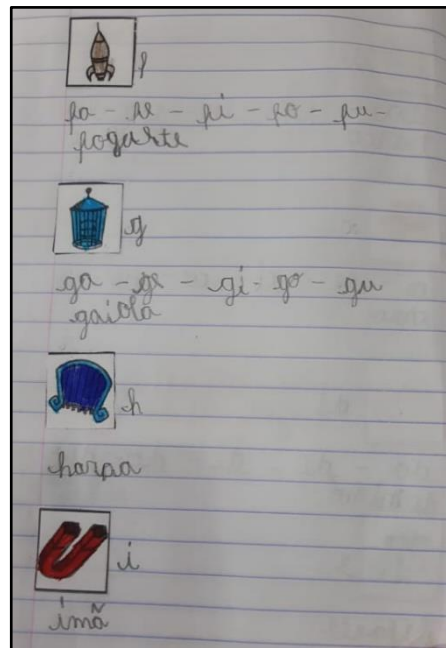 f
fa - fe - fi - fo - fu -
g
ga - ge - gi - go - gu
gaiola
h
harpa
i
imã